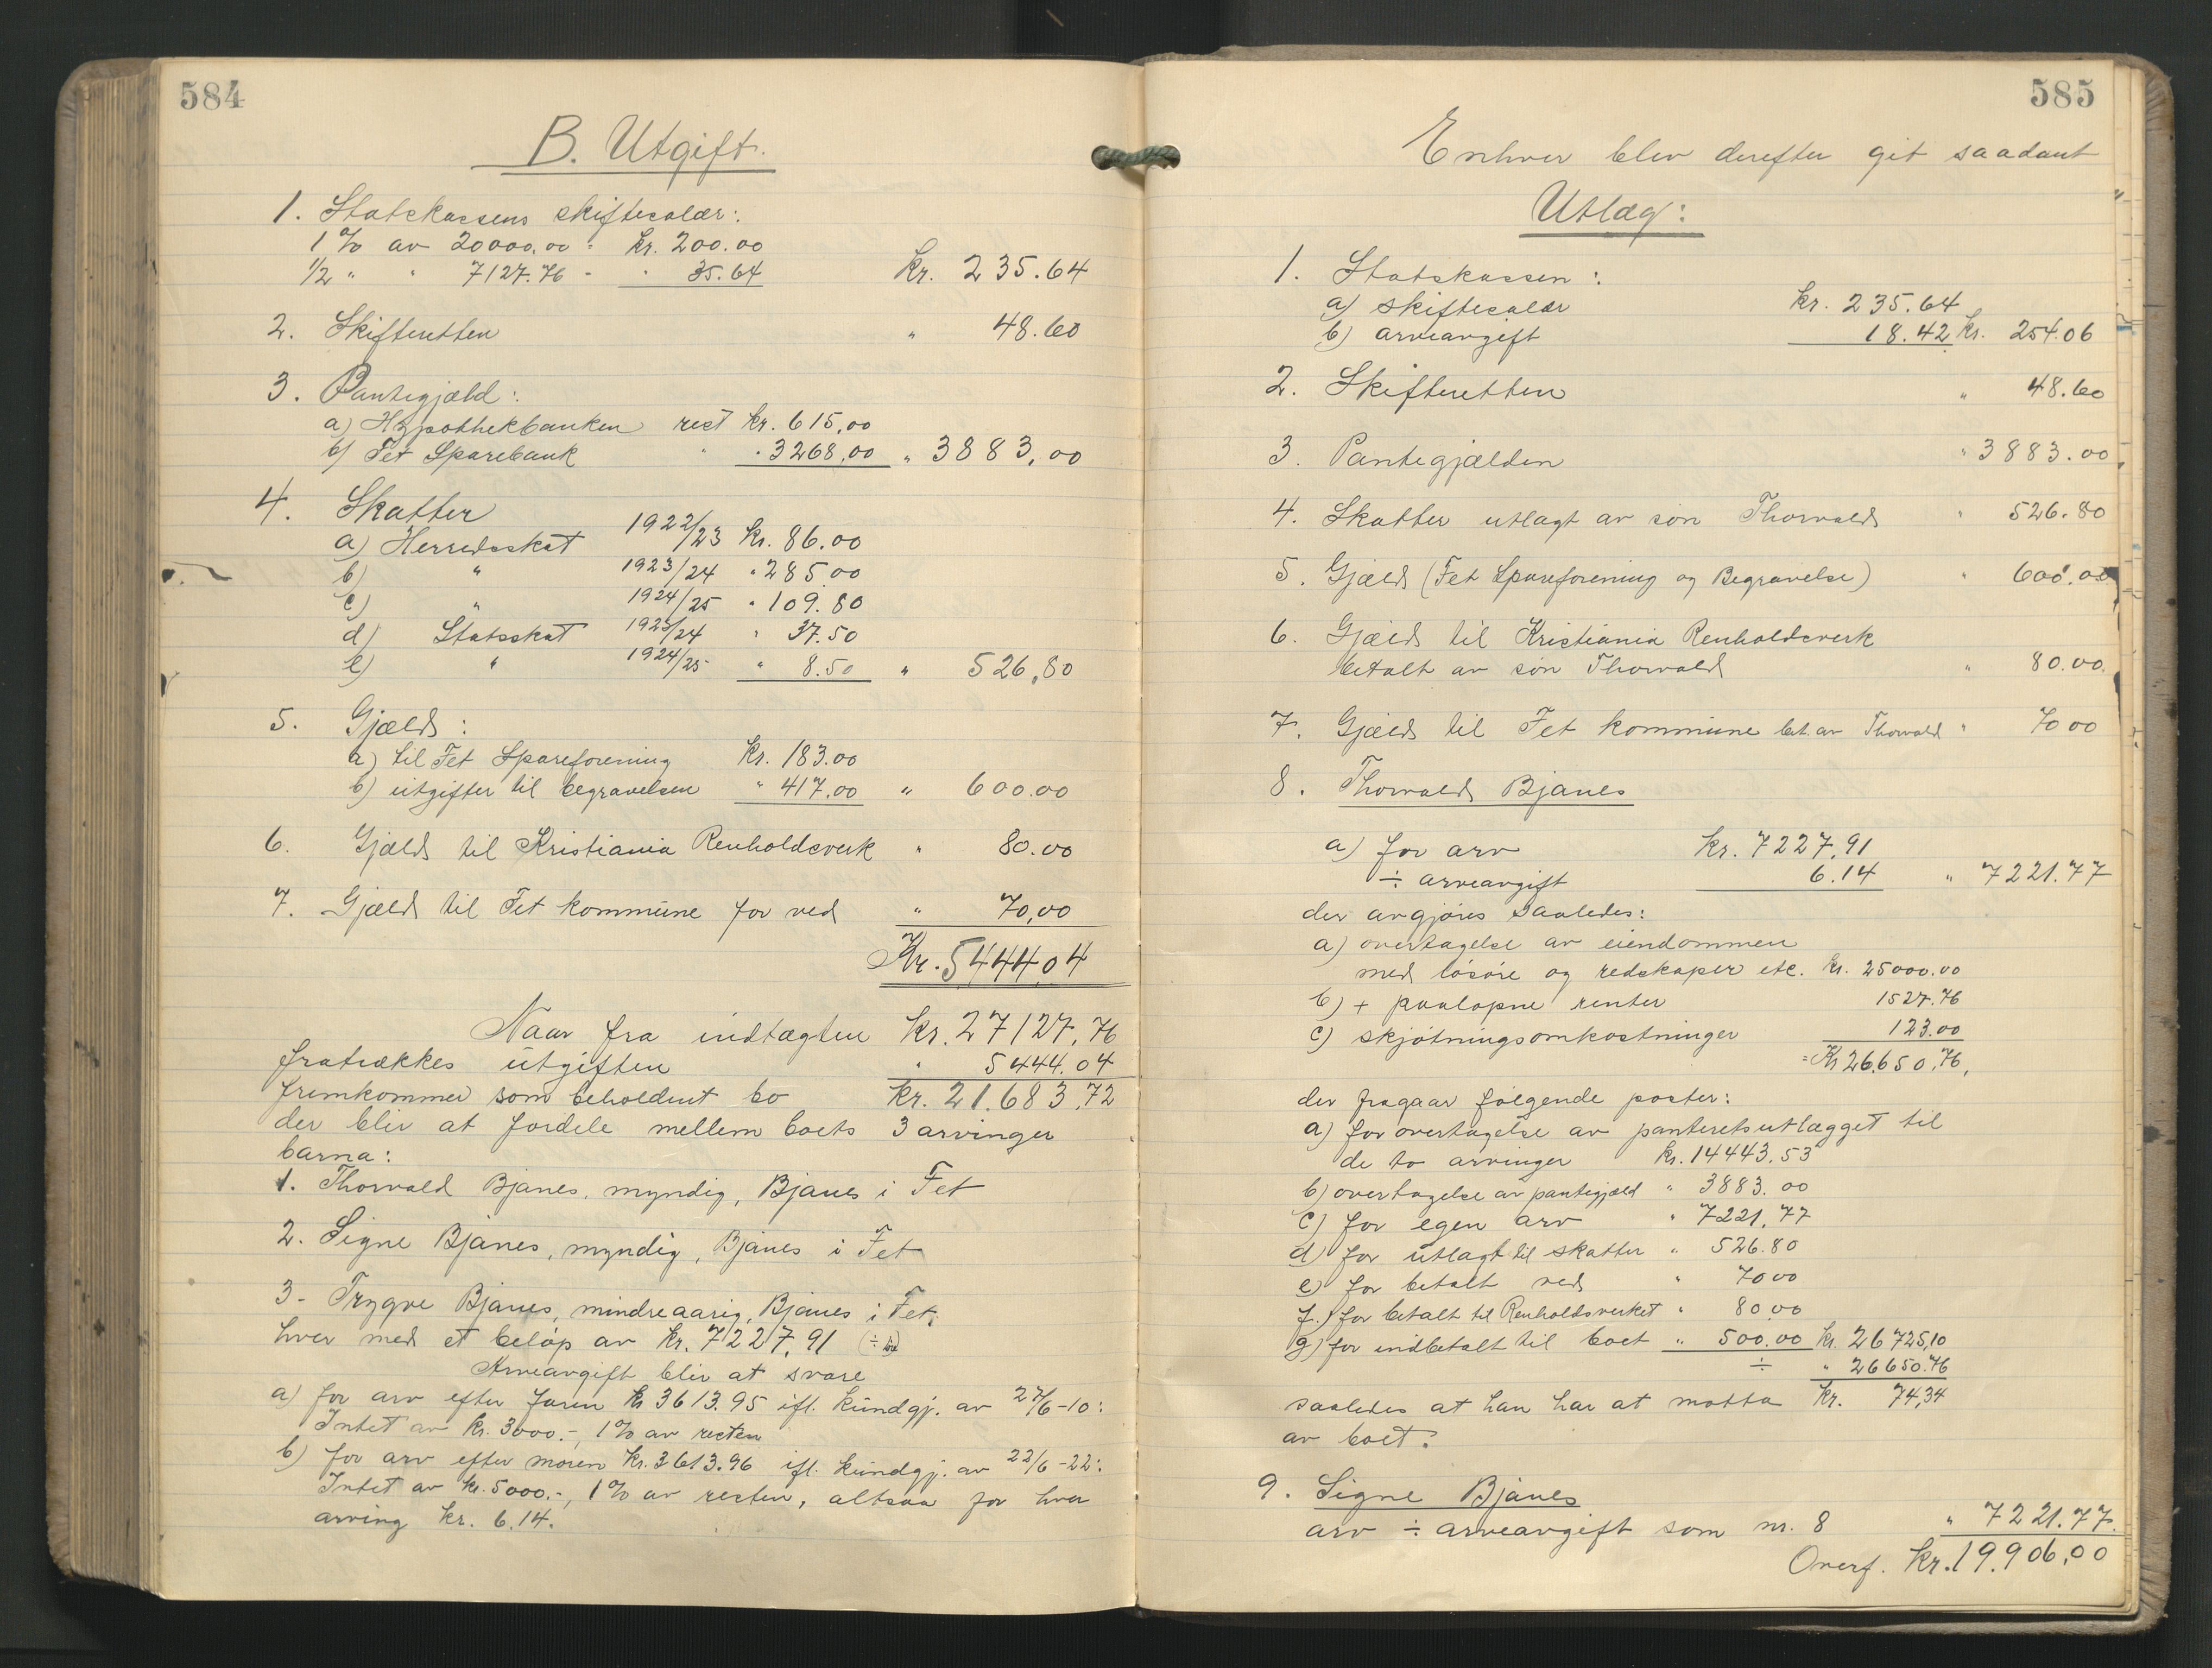 584
B. Utgift.
1. Statskassens skiftesalær:
1 % av 20000.00 = kr. 200.00
1/2 " " 7127.76 - " 35.64 kr. 235.64
2. Skifteretten " 48.60
3. Pantegjæld:
a) Hypothekbanken rest kr. 615,00
b) Fet Sparebank " " 3268,00 " 3883,00
4. Skatter
a) Herredsskat 1922/23 kr. 86.00
b) " 1923/24 " 285.00
c) " 1924/25 " 109.80
d) Statsskat 1923/24 " 37.50
e) " 1924/25 " 8.50 " 526,80
5. Gjæld:
a) til Fet Spareforening kr. 183.00
b) utgifter til begravelsen " 417.00 " 600.00
6. Gjæld til Kristiania Renholdsverk " 80.00
7. Gjæld til Fet kommune for ved " 70,00
Kr. 5444.04
Naar fra indtægten kr. 27127.76
fratrækkes utgiften " 5444.04
fremkommer som beholdent bo kr. 21.683,72
der blir at fordele mellem boets 3 arvinger
barna:
1. Thorvald Bjanes, myndig, Bjanes i Fet
2. Signe Bjanes, myndig, Bjanes i Fet
3 - Trygve Bjanes, mindreaarig, Bjanes i Fet,
hver med et beløp av kr. 7227,91
Arveavgift blir at svare
a) for arv efter faren kr 3613.95 ifl. kundgj. av 27/6-10:
Intet av kr. 3000.-, 1% av resten
b) for arv efter moren kr. 3613.96 ifl. kundgj. av 22/6-22:
Intet av kr. 5000.-, 1% av resten, altsaa for hver
arving kr. 6.14.
585
Enhver blev derefter git saadant
Utlæg:
1. Statskassen:
a) skiftesalær kr. 235.64
b) arveavgift 18.42 kr. 254.06
2. Skifteretten " 48.60
3. Pantegjælden " 3883.00
4. Skatter utlagt av søn Thorvald " 526.80
5. Gjæld (Fet Spareforening og Begravelse) " 600.00
6. Gjæld til Kristiania Renholdsverk
betalt av søn Thorvald " 80.00
7. Gjæld til Fet kommune bet. av Thorvald " 70 00
8. Thorvald Bjanes
a) for arv kr. 7227,91
÷ arveavgift 6.14 " 7221.77
der avgjøres saaledes:
a) overtagelse av eiendommen
med løsøre og redskaper etc. kr. 25000.00
b) + paaløpne renter 1527.76
c) skjøtningsomkostninger 123.00
= Kr 26.650,76,
der fragaar følgende poster:
a) for overtagelse av panteretsutlægget til
de to arvinger kr. 14443.53
b) overtagelse av pantegjæld " 3883.00
c) for egen arv " 7221,77
d) for utlagt til skatter " 526.80
e) for betalt ved " 70 00
f) for betalt til Renholdsverket " 80.00
g) for indbetalt til boet " 500.00 kr. 26725,10
÷ " 26650.76
saaledes at han har at motta kr. 74,34
av boet.
9. Signe Bjanes
arv ÷ arveavgift som nr. 8 " 7221.77.
Overf. kr. 19.906,00